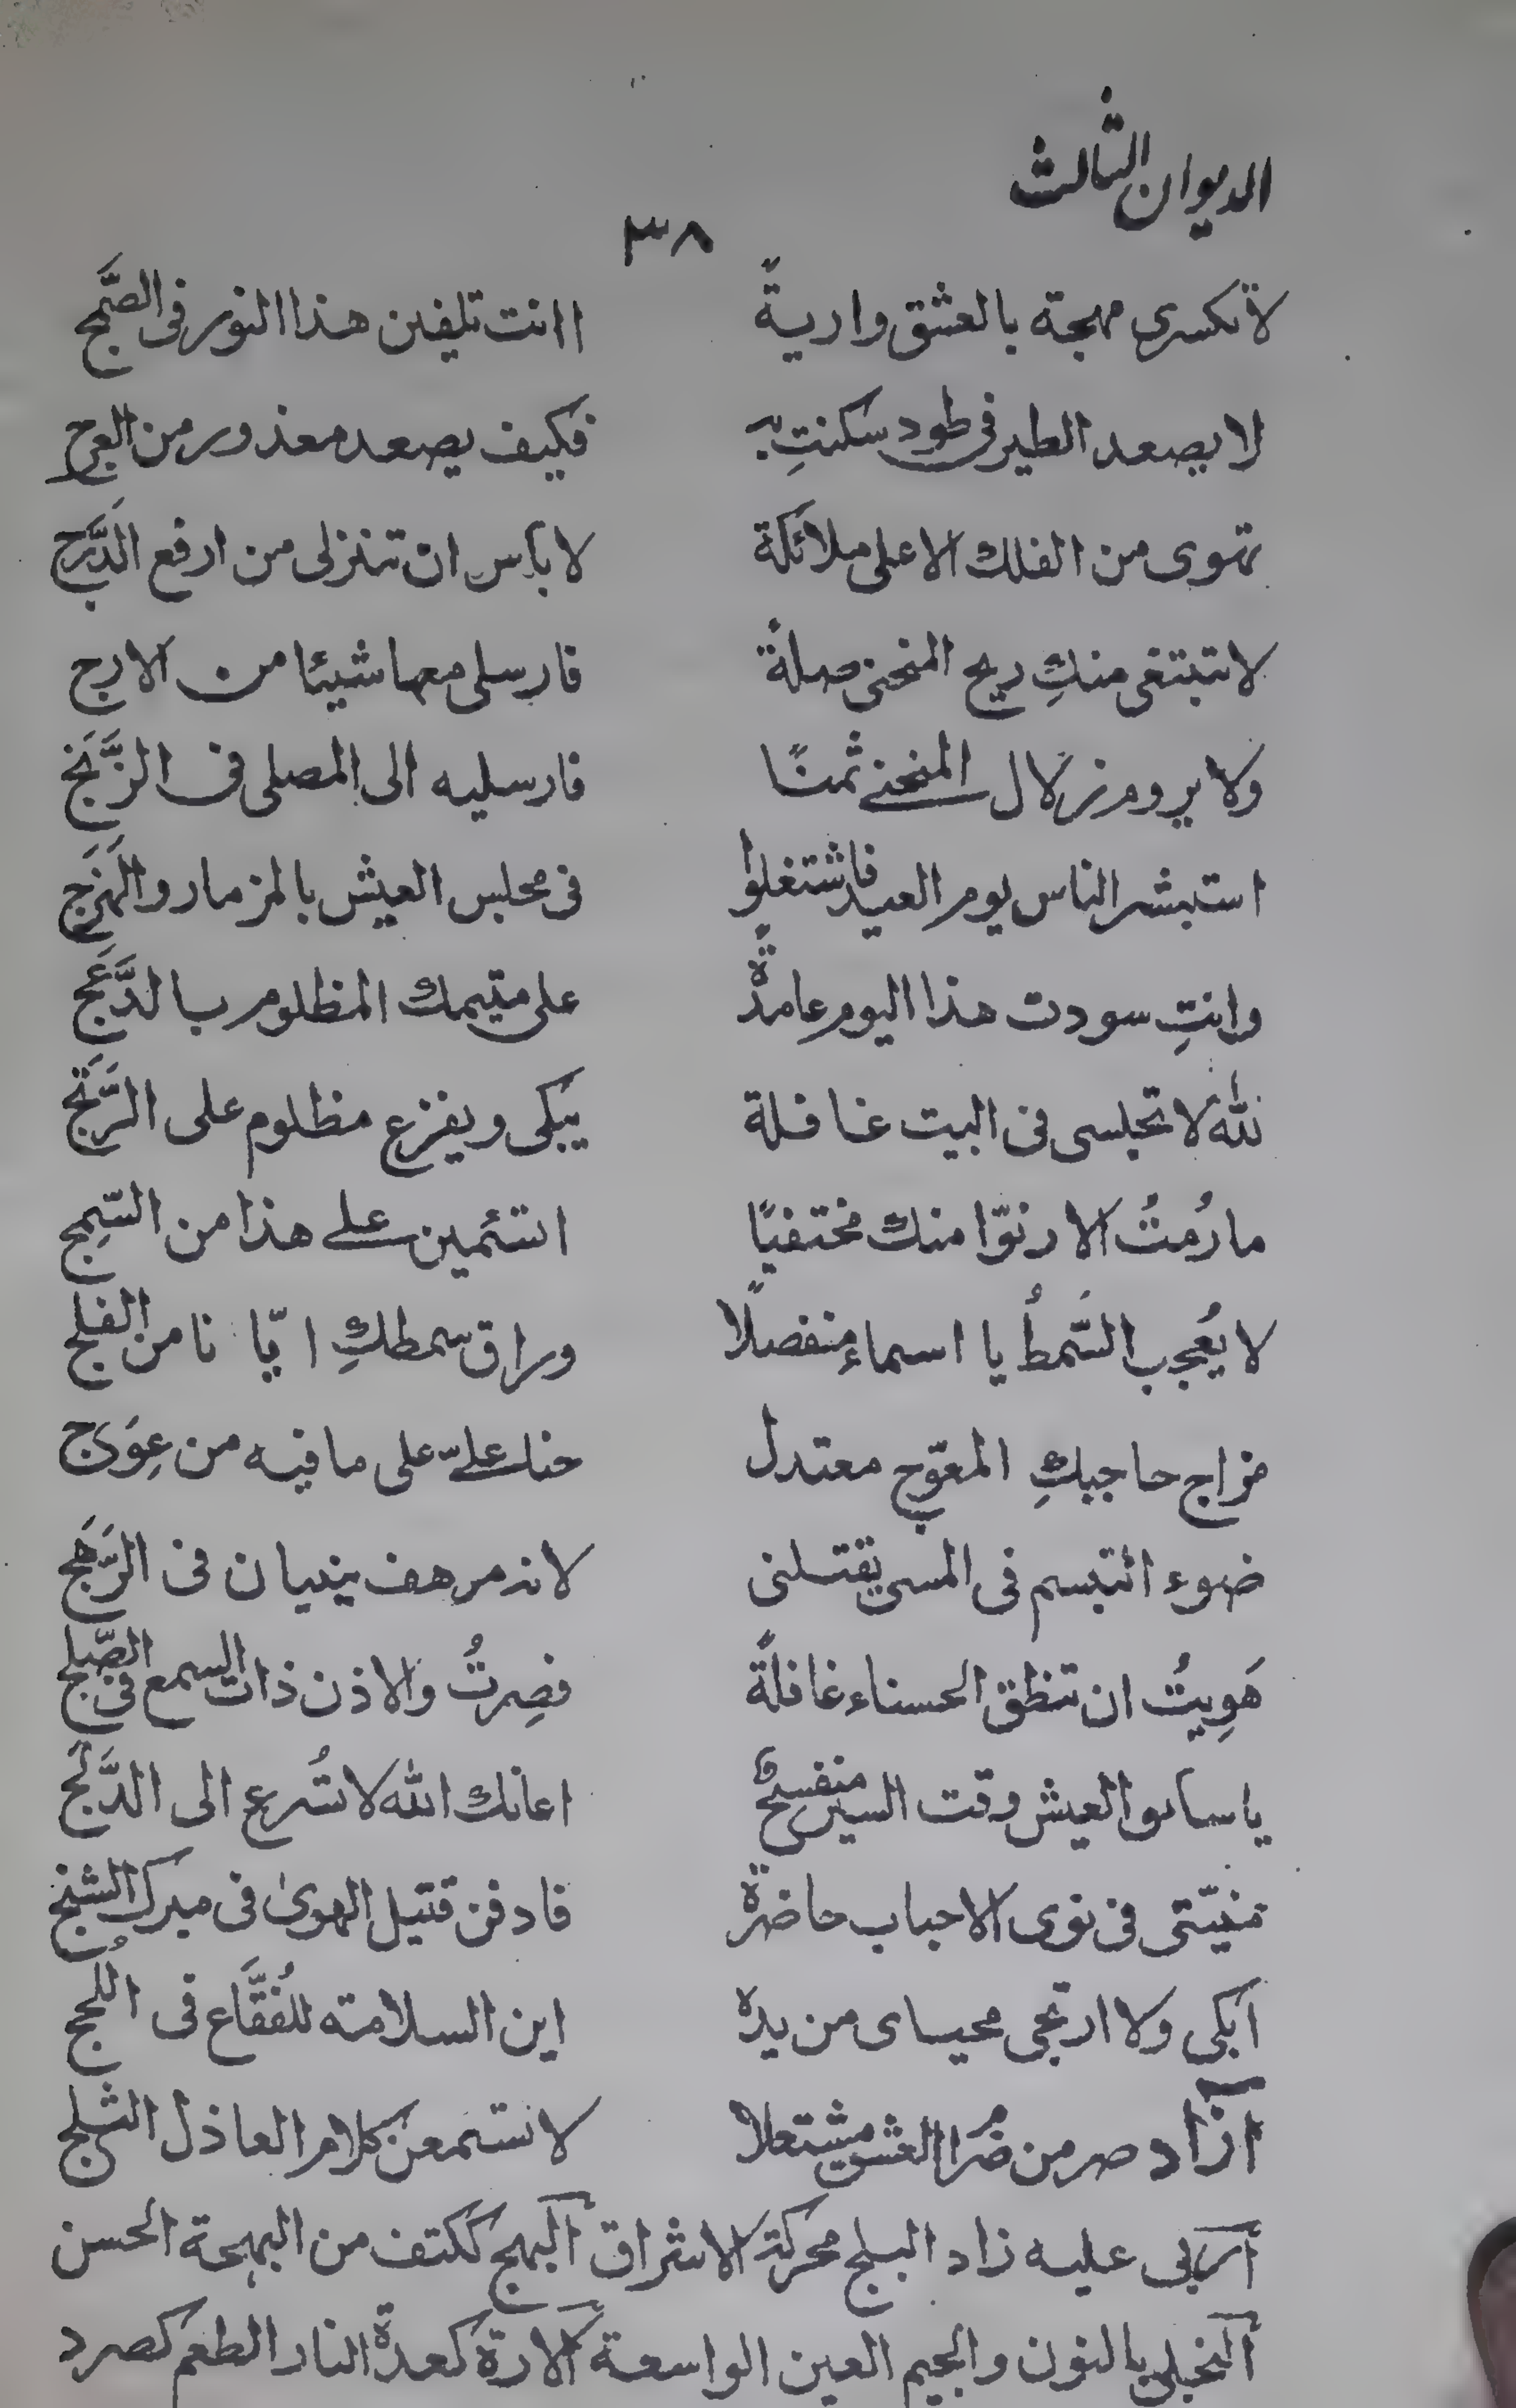 الديوان الثالث
٣٨
لا تكسرى مهجة بالعشق واريةً اانت تلفين هذا النور فى الصَّبج
لا يصعد الطير فى طود سكنتِ به فكيف يصعد معذور من العرج
تهوى من الفلك الاعلى ملائكة لا بأس ان تنزلى من ارفع الدَّرَج
لا تبتغى منكِ ريح المنحنى صلةً فارسلى معها شيئا من الارج
ولا يروم زلال المنحنى ثمنًا فارسليه الى المصلى فى الزَّنَج
استبشر الناس يوم العيد فاشتغلوا فى مجلس العيش بالمزمار والهَزَج
وانتِ سودت هذا اليوم عامدةً على متيمك المظلوم بالدَّعَج
لله لا تجلسى فى البيت غافلة يبكى ويفزع مظلوم على الرَّتَج
ما رُمتُ الا رنوّا منك مختفيًا اتسئمين على هذا من السَّمِج
لا يُعجب السَّمطُ يا اسماء منفصلًا وراق سمطكِ ايّانا من الفلج
مزاج حاجبكِ المعوّج معتدل حنك علىّ على ما فيه من عِوَج
ضوء التبسم فى المسى يقتلنى لانه مرهف ينيبان فى الرَّهَج
هَوِيتُ ان تنطق الحسناء غافلةً فصِرتُ والاذن ذات السمع فى الصَّلج
يا سائق العيش وقت السير منفسحٌ اعانك الله لا تُسرع الى الدَّلَج
منيّتى فى نوى الاحباب حاضرة فادفن قتيل الهوىٰ فى مبرك الشنج
ابكى ولا ارتجى محياى من يده اين السلامة للفُقَّاع فى اللُجج
آزاد صر من ضُرّ العشق مشتعلا لا تسمعن كلام العاذل الثلج
اربى عليه زاد البلج محركة الاشراق البهج ككتف من البهجة الحسن
النجل بالنون والجيم العين الواسعة الارة كعدة النار الطعم كصرد